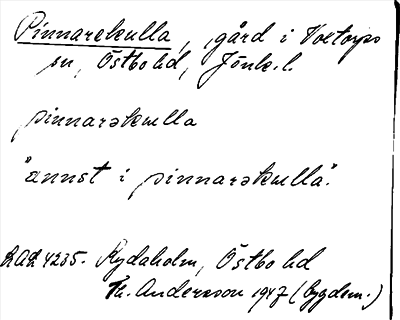 Pinnarekulla, gård i Voxtorps
sn, Östbo hd, Jönk.l.
pinnarəkwlla
"annst i pinnarəkwlla".
RAÄ 4235. Rydaholm, Östbo hd
Th. Andersson 1947 (Bygdem.)